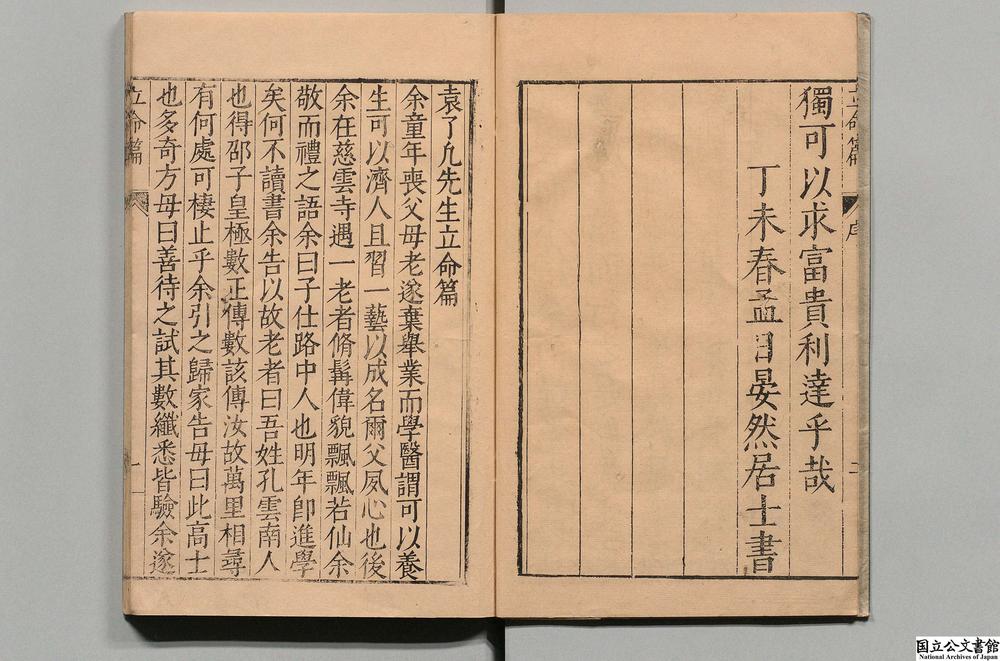 獨可以求富貴利達乎哉
丁未春孟日晏然居士書
立命篇
序
二
袁了凡先生立命篇
余童年喪父母老遂棄舉業而學醫謂可以養
生可以濟人且習一藝以成名爾父夙心也後
余在慈雲寺遇一老者脩髯偉貌飄飄若仙余
敬而禮之語余曰子仕路中人也明年卽進學
矣何不讀書余告以故老者曰吾姓孔雲南人
也得邵子皇極數正傳數該傳汝故萬里相尋
有何處可棲止乎余引之歸家告母曰此高士
也多奇方母曰善待之試其數纖悉皆驗余遂
立命篇
一
国立公文書館
National Archives of Japan